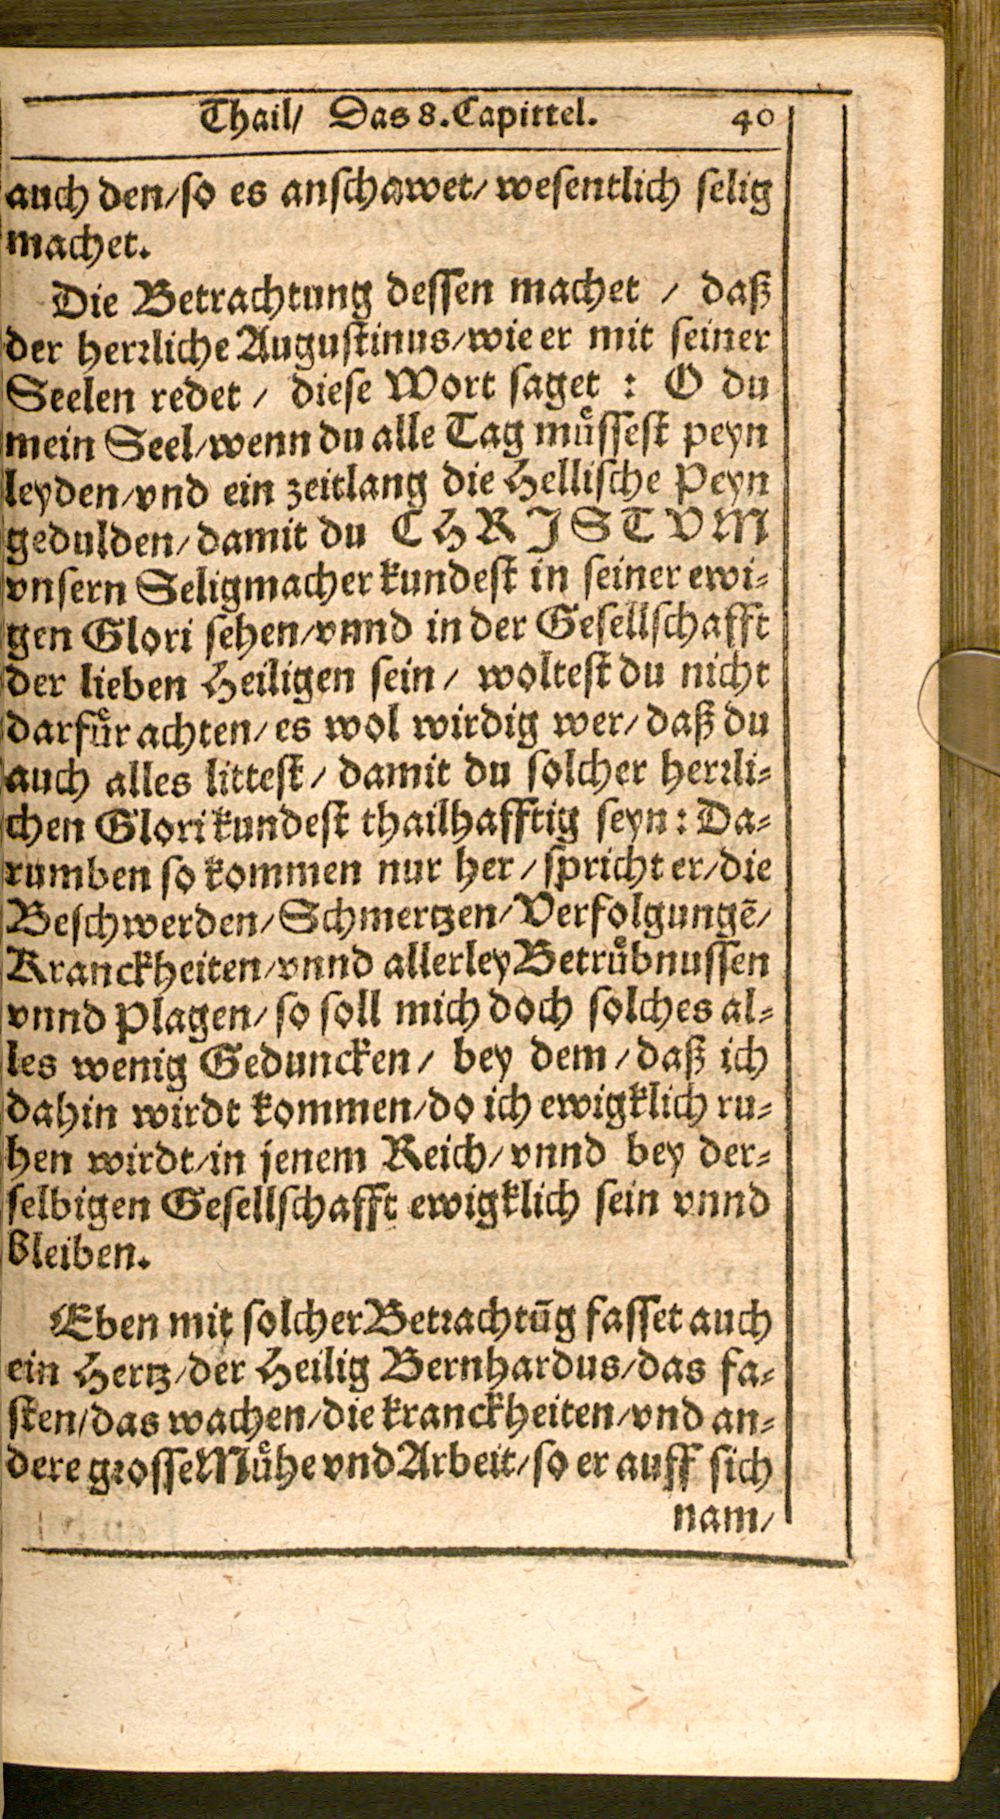 Thail/ Das 8. Capittel. 40
auch den/so es anschawet/wesentlich selig
machet.
Die Betrachtung dessen machet / daß
der herꝛliche Augustinus/wie er mit seiner
Seelen redet / diese Wort saget : O du
mein Seel/wenn du alle Tag muͤssest peyn
leyden/vnd ein zeitlang die Hellische Peyn
gedulden/damit du CHRJSTVM
vnsern Seligmacher kundest in seiner ewi-
gen Glori sehen/vnnd in der Gesellschafft
der lieben Heiligen sein / woltest du nicht
darfuͤr achten/es wol wirdig wer/daß du
auch alles littest / damit du solcher herꝛli-
chen Glori kundest thailhafftig seyn: Da-
rumben so kommen nur her / spricht er/die
Beschwerden/Schmertzen/Verfolgungē/
Kranckheiten/vnnd allerley Betruͤbnussen
vnnd Plagen/so soll mich doch solches al-
les wenig Geduncken / bey dem / daß ich
dahin wirdt kommen/do ich ewigklich ru-
hen wirdt/in jenem Reich/vnnd bey der-
selbigen Gesellschafft ewigklich sein vnnd
bleiben.
Eben mit solcher Betꝛachtūg fasset auch
ein Hertz/der Heilig Bernhardus/das fa-
sten/das wachen/die kranckheiten/vnd an-
dere gꝛosse Muͤhe vnd Arbeit/so er auff sich
nam/